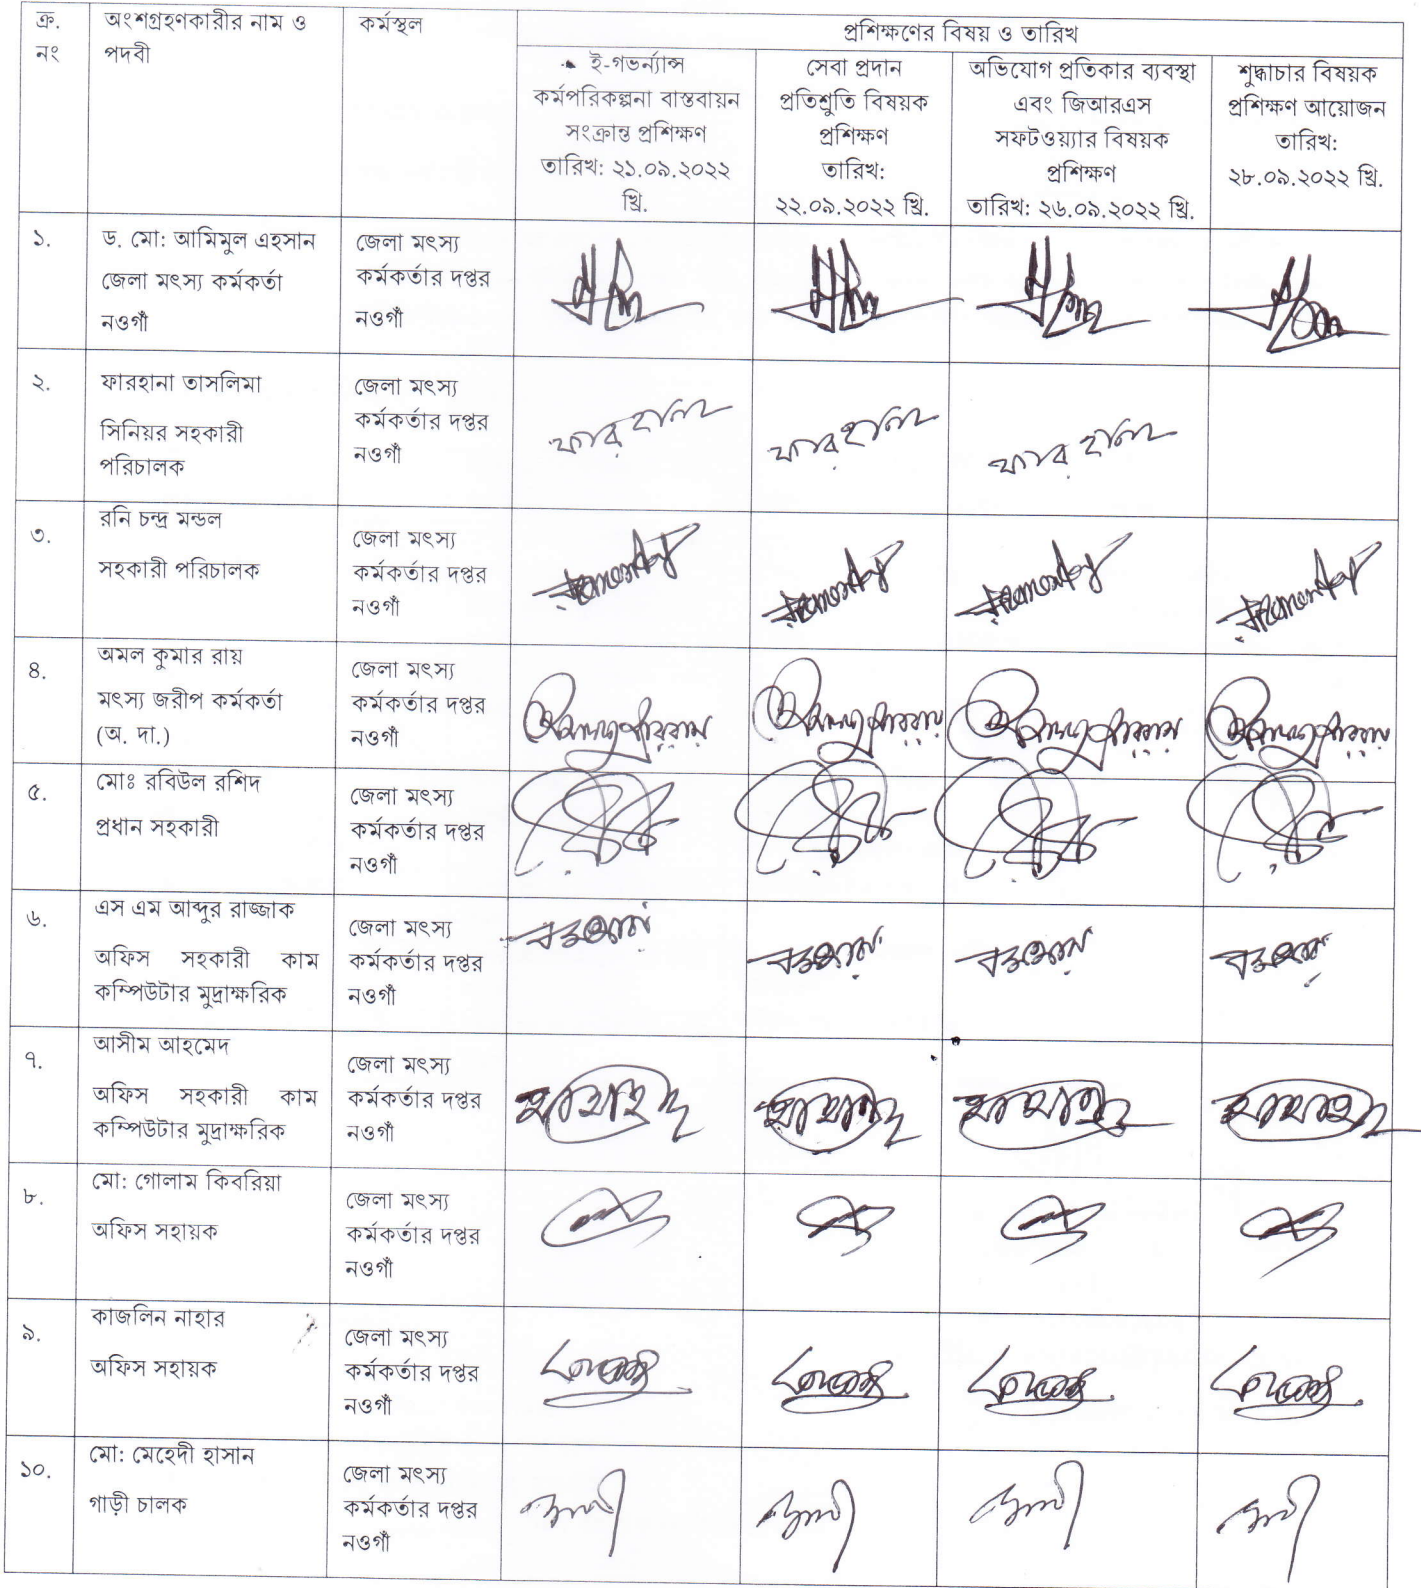 ক্র. নং
অংশগ্রহণকারীর নাম ও
পদবী
কর্মস্থল
প্রশিক্ষণের বিষয় ও তারিখ
ই-গভর্ন্যান্স
কর্মপরিকল্পনা বাস্তবায়ন
সংক্রান্ত প্রশিক্ষণ
তারিখ: ২১.০৯.২০২২
খ্রি.
সেবা প্রদান
প্রতিশ্রুতি বিষয়ক
প্রশিক্ষণ
তারিখ:
২২.০৯.২০২২ খ্রি.
অভিযোগ প্রতিকার ব্যবস্থা
এবং জিআরএস
সফটওয়্যার বিষয়ক
প্রশিক্ষণ
তারিখ: ২৬.০৯.২০২২ খ্রি.
শুদ্ধাচার বিষয়ক
প্রশিক্ষণ আয়োজন
তারিখ:
২৮.০৯.২০২২ খ্রি.
১.
ড. মো: আমিমুল এহসান
জেলা মৎস্য কর্মকর্তা
নওগাঁ
জেলা মৎস্য
কর্মকর্তার দপ্তর
নওগাঁ
২.
ফারহানা তাসলিমা
সিনিয়র সহকারী
পরিচালক
জেলা মৎস্য
কর্মকর্তার দপ্তর
নওগাঁ
ফারহানা
ফারহানা
ফারহানা
৩.
রনি চন্দ্র মন্ডল
সহকারী পরিচালক
জেলা মৎস্য
কর্মকর্তার দপ্তর
নওগাঁ
৪.
অমল কুমার রায়
মৎস্য জরীপ কর্মকর্তা
(অ. দা.)
জেলা মৎস্য
কর্মকর্তার দপ্তর
নওগাঁ
৫.
মোঃ রবিউল রশিদ
প্রধান সহকারী
জেলা মৎস্য
কর্মকর্তার দপ্তর
নওগাঁ
৬.
এস এম আব্দুর রাজ্জাক
অফিস সহকারী কাম
কম্পিউটার মুদ্রাক্ষরিক
জেলা মৎস্য
কর্মকর্তার দপ্তর
নওগাঁ
৭.
আসীম আহমেদ
অফিস সহকারী কাম
কম্পিউটার মুদ্রাক্ষরিক
জেলা মৎস্য
কর্মকর্তার দপ্তর
নওগাঁ
৮.
মো: গোলাম কিবরিয়া
অফিস সহায়ক
জেলা মৎস্য
কর্মকর্তার দপ্তর
নওগাঁ
৯.
কাজলিন নাহার
অফিস সহায়ক
জেলা মৎস্য
কর্মকর্তার দপ্তর
নওগাঁ
১০.
মো: মেহেদী হাসান
গাড়ী চালক
জেলা মৎস্য
কর্মকর্তার দপ্তর
নওগাঁ